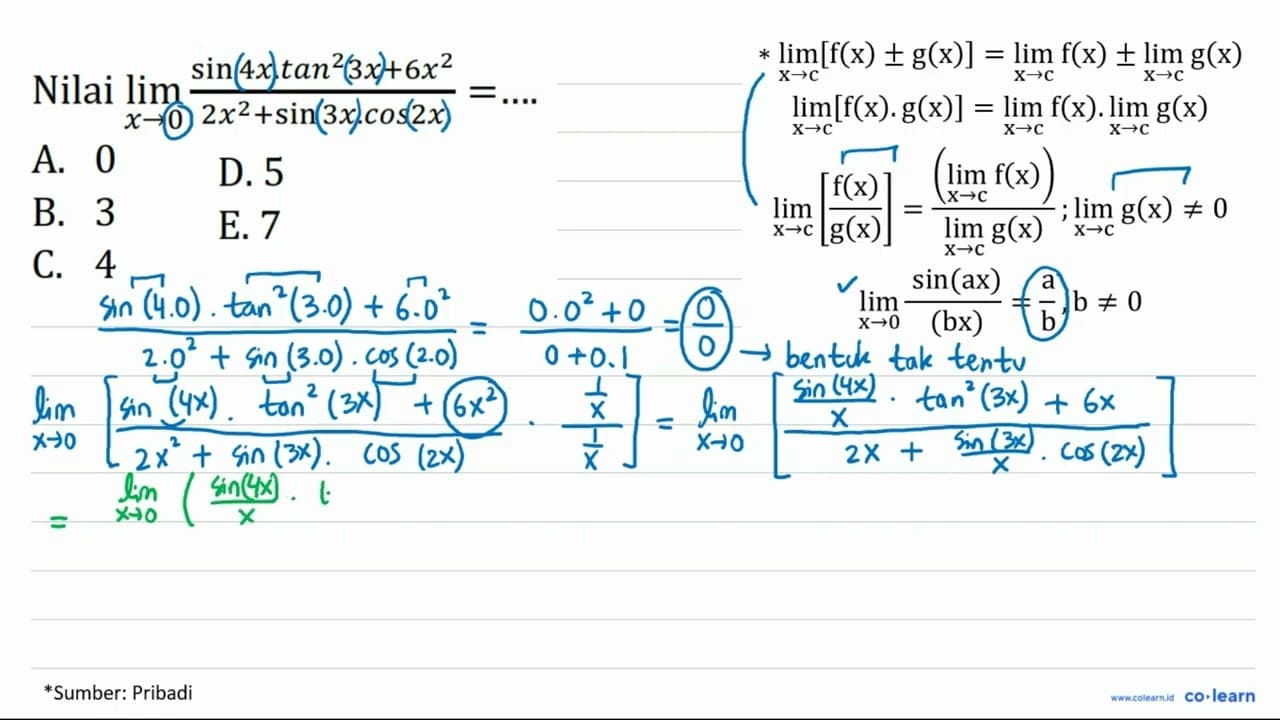 Nilai lim x→0 sin(4x).tan²(3x)+6x² / 2x²+sin(3x).cos(2x) = ....
A. 0
B. 3
C. 4
D. 5
E. 7
* lim x→c [f(x) ± g(x)] = lim x→c f(x) ± lim x→c g(x)
lim x→c [f(x). g(x)] = lim x→c f(x). lim x→c g(x)
lim x→c [f(x)/g(x)] = (lim x→c f(x)) / lim x→c g(x) ; lim x→c g(x) ≠ 0
✓ lim x→0 sin(ax)/(bx) = a/b, b ≠ 0
sin (4.0) . tan² (3.0) + 6.0² / 2.0² + sin (3.0) . cos (2.0) = 0.0² + 0 / 0 + 0.1 = 0/0 → bentuk tak tentu
lim x→0 [sin (4x) . tan² (3x) + 6x² / 2x² + sin (3x) . cos (2x) . 1/x / 1/x] = lim x→0 [sin (4x)/x . tan² (3x) + 6x / 2x + sin (3x)/x . cos (2x)]
= lim x→0 ( sin(4x)/x . t
*Sumber: Pribadi
www.colearn.id co·learn